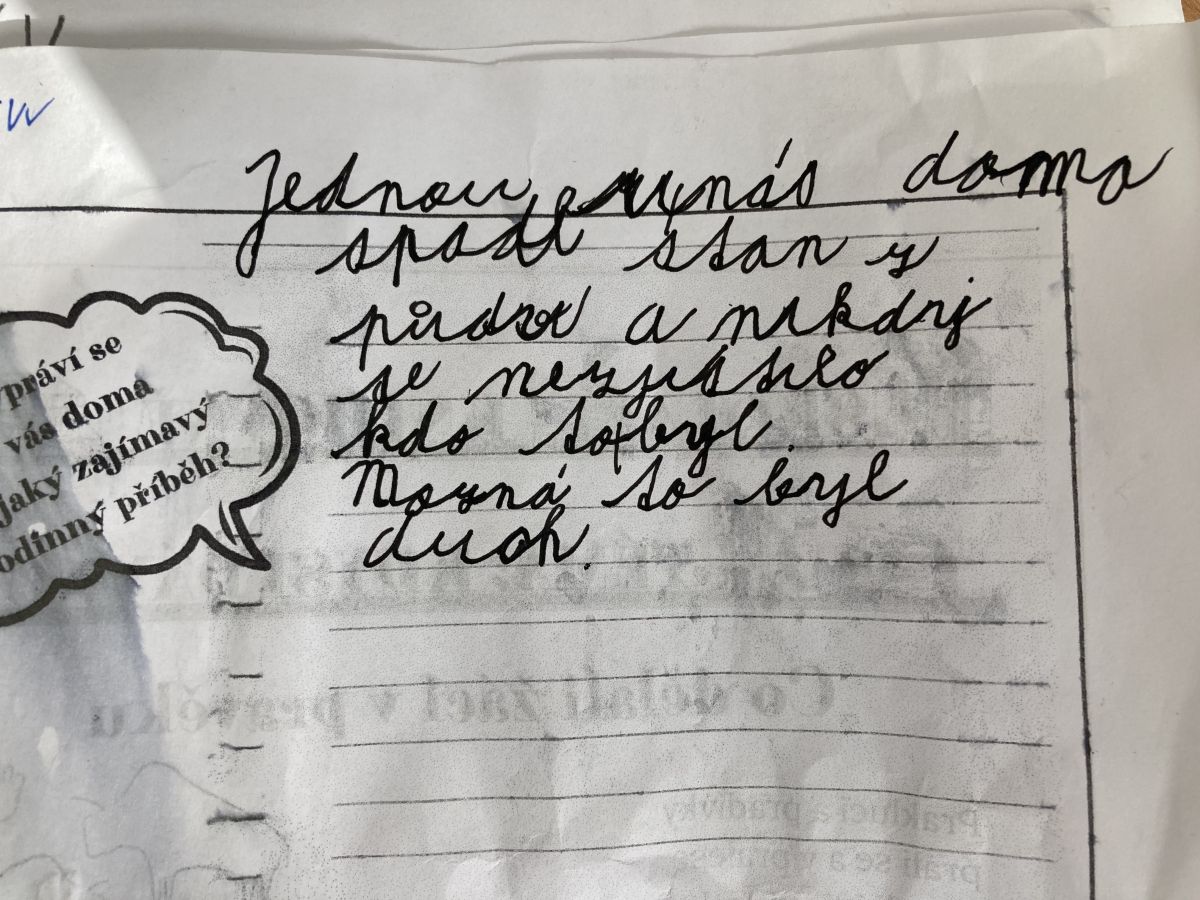 Jednou u nás doma
spadl stan z
půdy a nikdy
se nezjistilo
kdo to byl.
Mozná to byl
duch.
práví se
vás doma
jaký zajímavý
odinný příběh?
Co dělali žáci v pravěku
Prakluci a pradívky